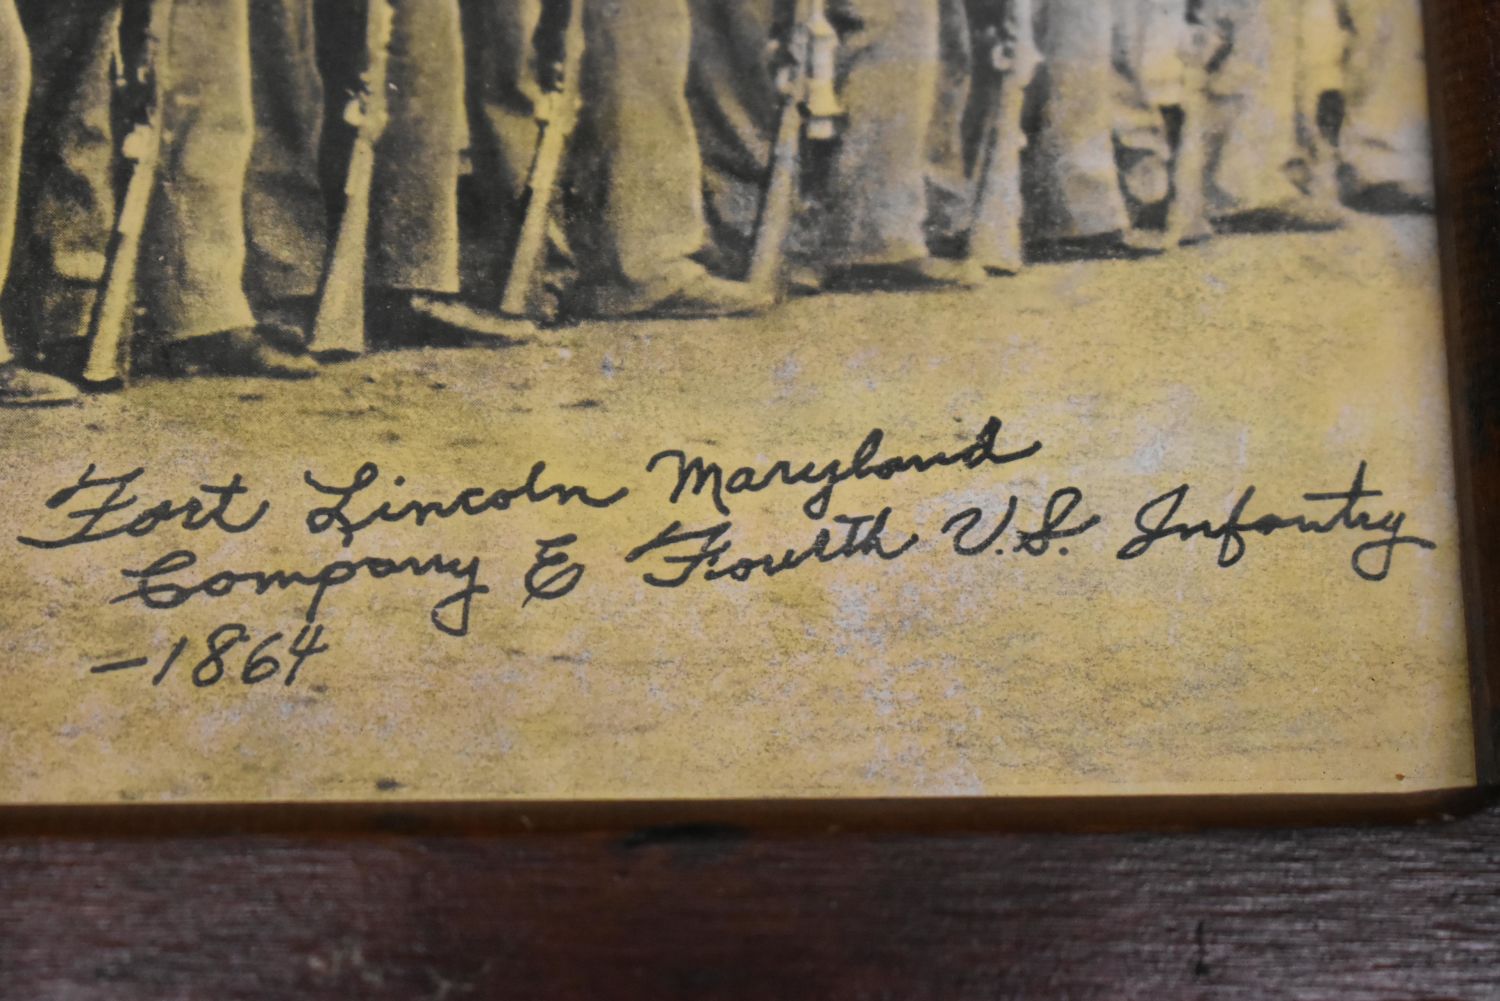 Fort Lincoln Maryland
Company E Fourth U.S. Infantry
-1864